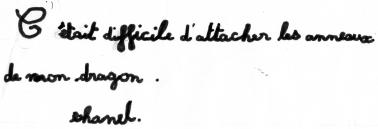 C'était difficile d'attacher les anneaux
de mon dragon.
chanel.